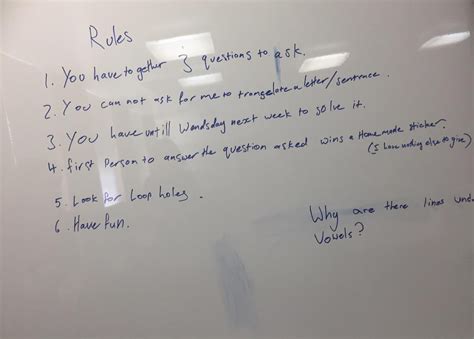 Rules
1. You have together 3 questions to ask.
2. You can not ask for me to trangelote a letter/sentence.
3. You have untill Wendsday next week to solve it.
4. first Person to answer the question asked wins a Homemade sticker.
(I have nothing else to give)
5. Look for Loop holes.
6. Have fun.
Why are there lines und
Vowels?